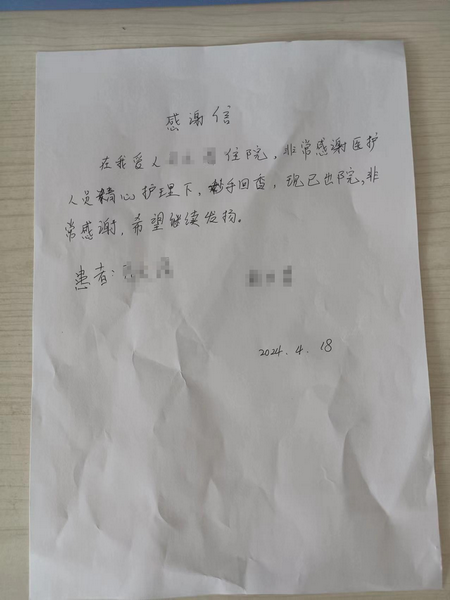 感谢信
在我爱人 住院,非常感谢医护
人员精心护理下,妙手回春,现已出院,非
常感谢,希望继续发扬。
患者:
2024.4.18